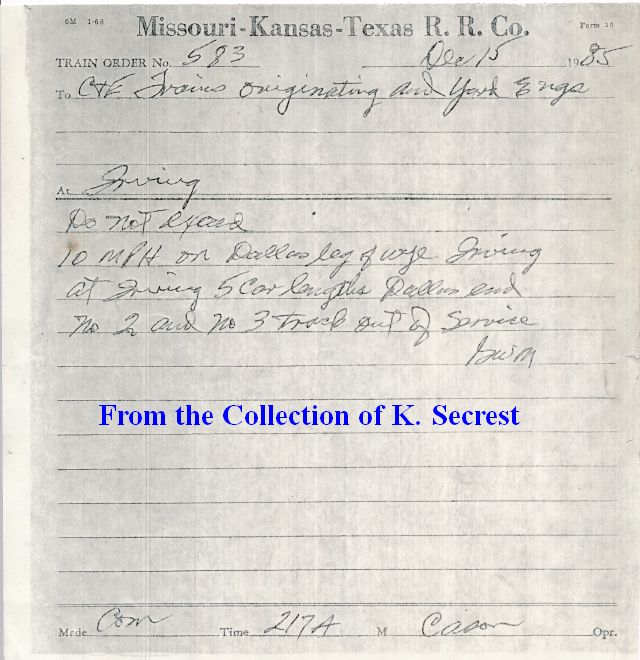 6M 1-68 Missouri-Kansas-Texas R. R. Co. Form 26
TRAIN ORDER No. 583 Dec 15 1985
To C&E Trains originating and Yard Engs
At Irving
Do not exceed
10 MPH on Dallas leg of wye Irving
at Irving 5 Car lengths Dallas end
No 2 and No 3 track out of Service
From the Collection of K. Secrest
Made Com Time 217A M Cason Opr.